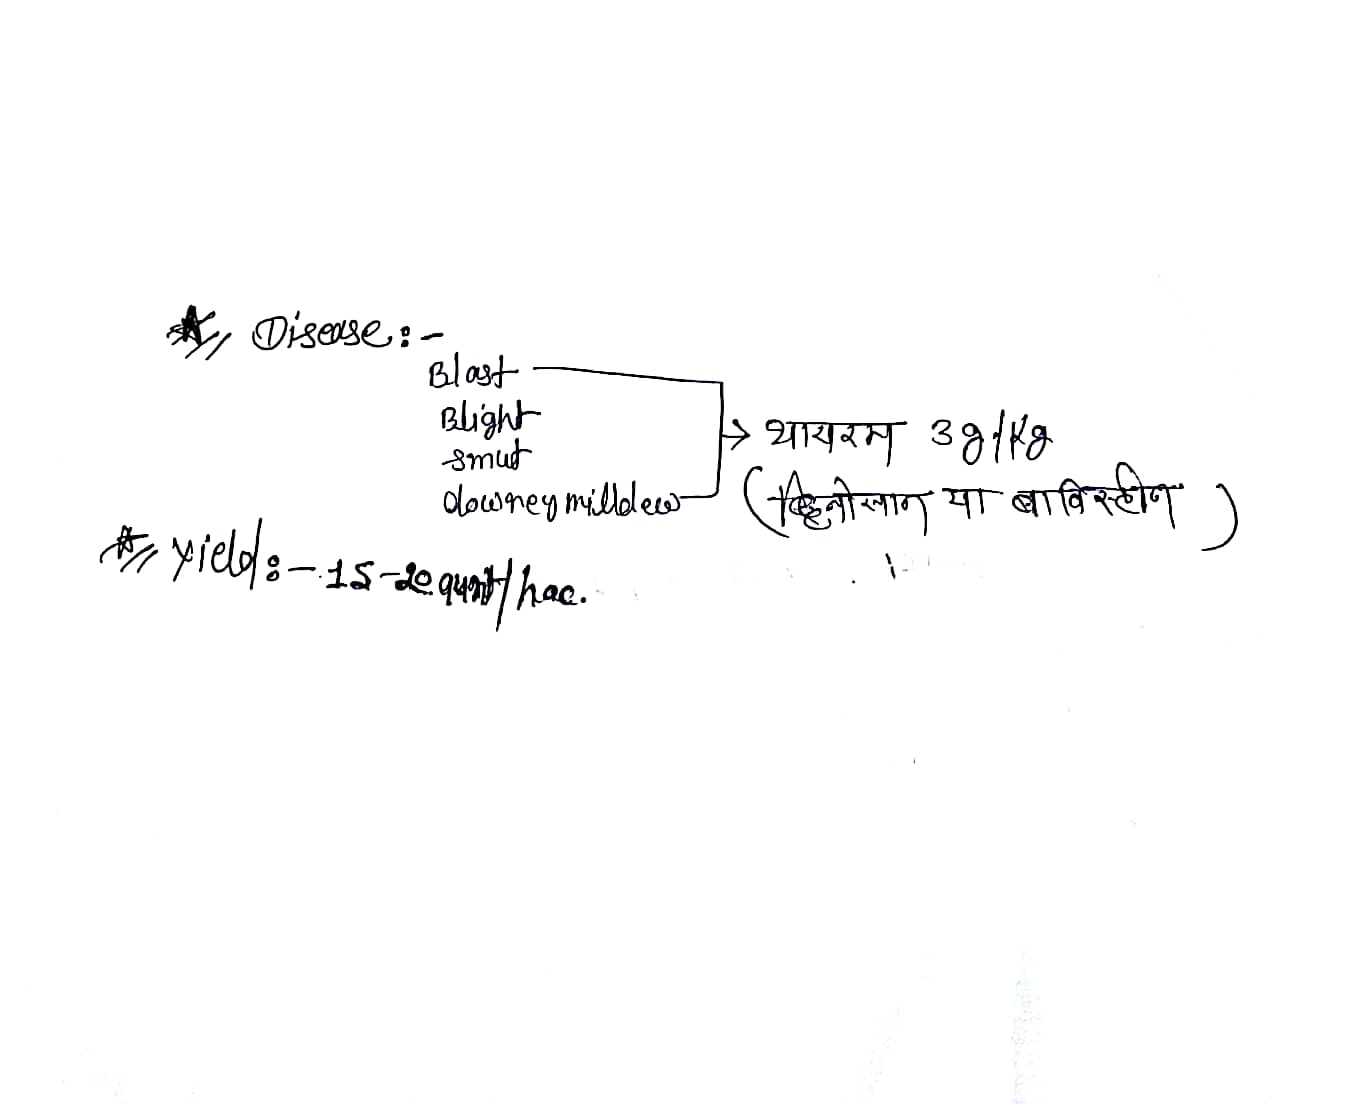 Disease:-
Blast
Blight
smut
downey milldew
→ थायरम 3g/Kg
(हिनोसान या बाविस्टीन)
Yield:- 15-20 qunt/hac.